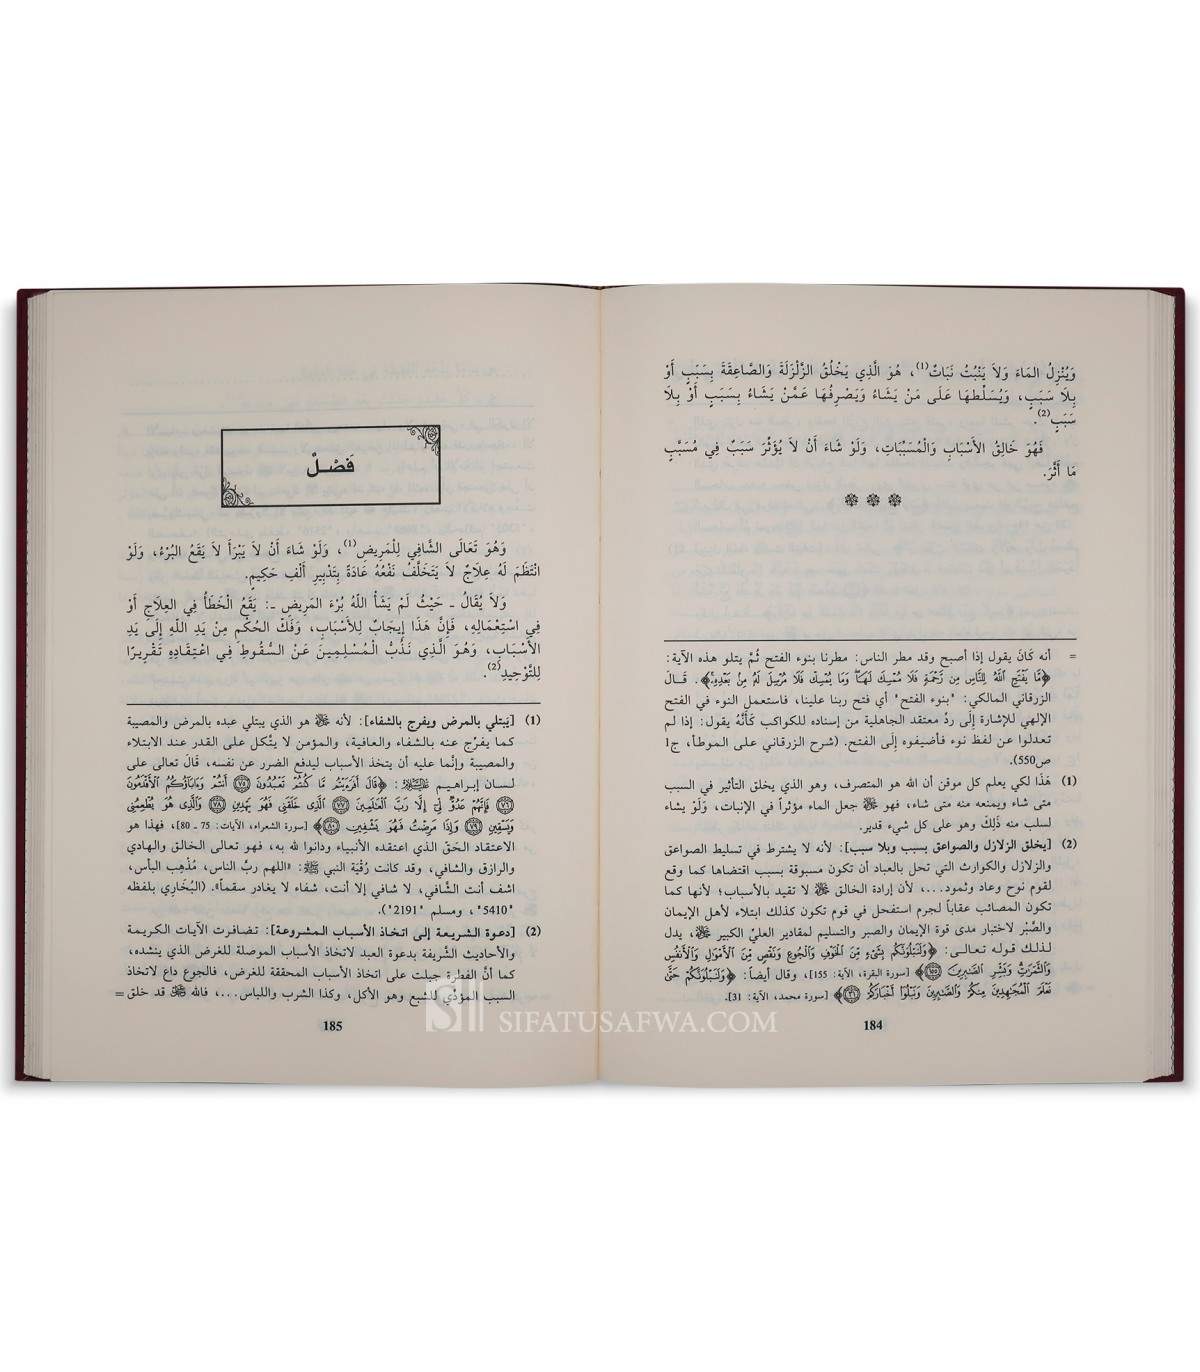 وَيُنْزِلُ المَاءَ وَلاَ يَنْبُتُ نَبَاتٌ(1)، هُوَ الَّذِي يَخْلُقُ الزَّلْزَلَةَ وَالصَّاعِقَةَ بِسَبَبٍ أَوْ
بِلَا سَبَبٍ، وَيُسَلِّطُهَا عَلَى مَنْ يَشَاءُ وَيَصْرِفُهَا عَمَّنْ يَشَاءُ بِسَبَبٍ أَوْ بِلَا
سَبَبٍ(2).
فَهُوَ خَالِقُ الأَسْبَابِ وَالْمُسَبَّبَاتِ، وَلَوْ شَاءَ أَنْ لاَ يُؤَثِّرَ سَبَبٌ فِي مُسَبَّبٍ
مَا أَثَّرَ.
= أنه كَانَ يقول إذا أصبح وقد مطر الناس: مطرنا بنوء الفتح ثُمَّ يتلو هذه الآية:
﴿مَّا يَفْتَحِ ٱللَّهُ لِلنَّاسِ مِن رَّحْمَةٍ فَلَا مُمْسِكَ لَهَا وَمَا يُمْسِكْ فَلَا مُرْسِلَ لَهُۥ مِنۢ بَعْدِهِۦ﴾. قَالَ
الزرقاني المالكي: "بنوء الفتح" أي فتح ربنا علينا، فاستعمل النوء في الفتح
الإلهي للإشارة إلى ردِّ معتقد الجاهلية من إسناده للكواكب كَأَنَّهُ يقول: إذا لم
تعدلوا عن لفظ نوء فأضيفوه إلَى الفتح. (شرح الزرقاني على الموطأ، ج1
ص550).
(1) هَذَا لكي يعلم كل موقن أن الله هو المتصرف، وهو الذي يخلق التأثير في السبب
متى شاء ويمنعه منه متى شاء، فهو ﷻ جعل الماء مؤثراً في الإنبات، وَلَوْ يشاء
لسلب منه ذَلِكَ وهو على كل شيء قدير.
(2) [يخلق الزلازل والصواعق بسبب وبلا سبب]: لأنه لا يشترط في تسليط الصواعق
والزلازل والكوارث التي تحل بالعباد أن تكون مسبوقة بسبب اقتضاها كما وقع
لقوم نوح وعاد وثمود...، لأن إرادة الخالق ﷻ لا تقيد بالأسباب؛ لأنها كما
تكون المصائب عقاباً لجرم استفحل في قوم تكون كذلك ابتلاء لأهل الإيمان
والصَّبْر لاختبار مدى قوة الإيمان والصبر والتسليم لمقادير العليّ الكبير ﷻ، يدل
لذلك قوله تعالى: ﴿وَلَنَبْلُوَنَّكُم بِشَىْءٍ مِّنَ ٱلْخَوْفِ وَٱلْجُوعِ وَنَقْصٍ مِّنَ ٱلْأَمْوَٰلِ وَٱلْأَنفُسِ
وَٱلثَّمَرَٰتِ وَبَشِّرِ ٱلصَّٰبِرِينَ ١٥٥﴾ [سورة البقرة، الآية: 155]، وقال أيضاً: ﴿وَلَنَبْلُوَنَّكُمْ حَتَّىٰ
نَعْلَمَ ٱلْمُجَٰهِدِينَ مِنكُمْ وَٱلصَّٰبِرِينَ وَنَبْلُوَا۟ أَخْبَارَكُمْ ٣١﴾ [سورة محمد، الآية: 31].
184
فَصْلٌ
وَهُوَ تَعَالَى الشَّافِي لِلْمَرِيضِ(1)، وَلَوْ شَاءَ أَنْ لاَ يَبْرَأَ لاَ يَقَعُ البُرْءُ، وَلَوْ
انْتَظَمَ لَهُ عِلاَجٌ لاَ يَتَخَلَّفُ نَفْعُهُ عَادَةً بِتَدْبِيرِ أَلْفِ حَكِيمٍ.
وَلاَ يُقَالُ ـ حَيْثُ لَمْ يَشَأْ اللهُ بُرْءَ المَرِيضِ ـ: يَقَعُ الْخَطَأُ فِي العِلاَجِ أَوْ
فِي اسْتِعْمَالِهِ، فَإِنَّ هَذَا إِيجَابٌ لِلأَسْبَابِ، وَفَكُّ الحُكْمِ مِنْ يَدِ اللهِ إِلَى يَدِ
الأَسْبَابِ، وَهُوَ الَّذِي نَذُبُّ الْمُسْلِمِينَ عَنْ السُّقُوطِ فِي اعْتِقَادِهِ تَقْرِيرًا
لِلتَّوْحِيدِ(2).
(1) [يَبتلي بالمرض ويفرج بالشفاء]: لأنه ﷻ هو الذي يبتلي عبده بالمرض والمصيبة
كما يفرّج عنه بالشفاء والعافية، والمؤمن لا يتّكل على القدر عند الابتلاء
والمصيبة وإنَّما عليه أن يتخذ الأسباب ليدفع الضرر عن نفسه، قَالَ تعالى على
لسان إبراهيم عليه السلام: ﴿قَالَ أَفَرَءَيْتُم مَّا كُنتُمْ تَعْبُدُونَ ٧٥ أَنتُمْ وَءَابَآؤُكُمُ ٱلْأَقْدَمُونَ
٧٦ فَإِنَّهُمْ عَدُوٌّ لِّىٓ إِلَّا رَبَّ ٱلْعَٰلَمِينَ ٧٧ ٱلَّذِى خَلَقَنِى فَهُوَ يَهْدِينِ ٧٨ وَٱلَّذِى هُوَ يُطْعِمُنِى
وَيَسْقِينِ ٧٩ وَإِذَا مَرِضْتُ فَهُوَ يَشْفِينِ ٨٠﴾ [سورة الشعراء، الآيات: 75 ـ 80]، فهذا هو
الاعتقاد الحَقّ الذي اعتقده الأنبياء ودانوا لله به، فهو تعالى الخالق والهادي
والرازق والشافي، وقد كانت رُقْيَة النبي ﷺ: «اللهم ربَّ الناس، مُذْهِب البأس،
اشف أنت الشَّافي، لا شافي إلا أنت، شفاء لا يغادر سقماً». (البُخَاري بلفظه
"5410"، ومسلم "2191").
(2) [دعوة الشريعة إلى اتخاذ الأسباب المشروعة]: تضافرت الآيات الكريمة
والأحاديث الشَّريفة بدعوة العبد لاتخاذ الأسباب الموصلة للغرض الذي ينشده،
كما أنَّ الفطرة جبلت على اتخاذ الأسباب المحققة للغرض، فالجوع داع لاتخاذ
السبب المؤدِّي للشبع وهو الأكل، وكذا الشرب واللباس...، فالله ﷻ قد خلق =
185
SIFATUSAFWA.COM